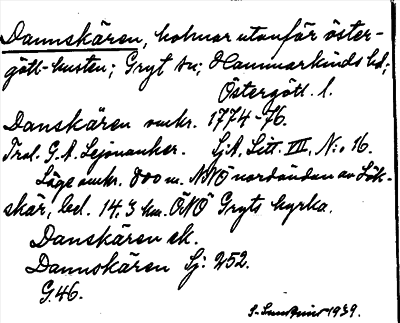 Dannskären, holmar utanför öster-
götl-kusten; Gryt sn; Hammarkinds hd;
Östergötl. l.
Danskären omkr. 1774-76.
Trol. G. A. Lejonanker. Sj.A, Litt. VII, N:o 16.
Läge omkr. 800 m. NNÖ nordändan av Lök-
skär, bel. 14,3 km. ÖNÖ Gryts kyrka.
Danskären ek.
Dannskären Sj: 252.
G.46.
1939.